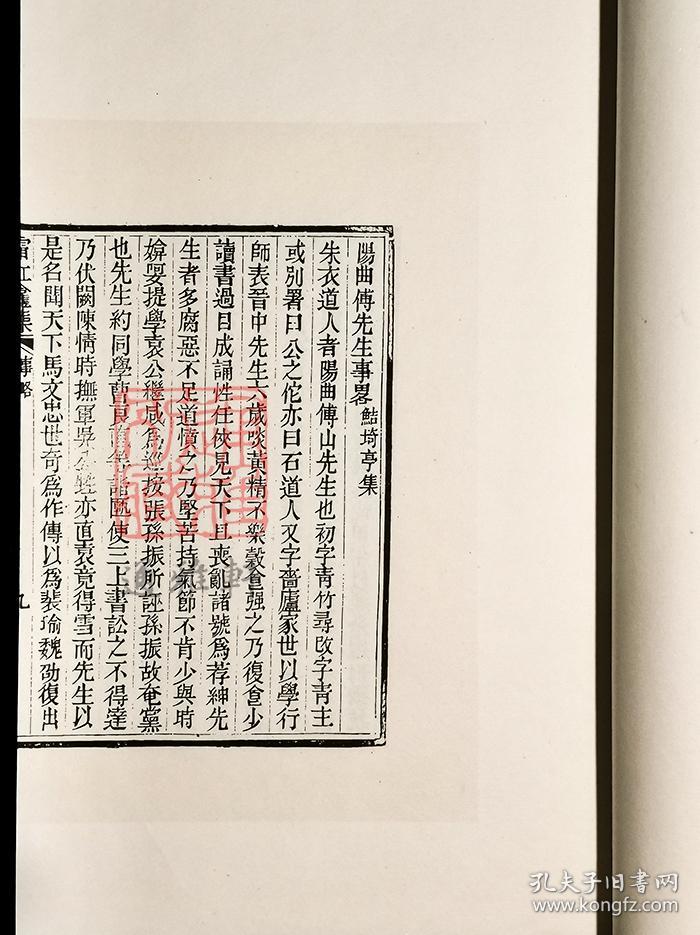 陽曲傅先生事畧 鮚埼亭集
朱衣道人者陽曲傅山先生也初字青竹尋改字青主
或別署曰公之佗亦曰石道人又字嗇廬家世以學行
師表晉中先生六歲啖黃精不樂穀食强之乃復食少
讀書過目成誦性任俠見天下且喪亂諸號爲荐紳先
生者多腐惡不足道憤之乃堅苦持氣節不肯少與時
媕娿提學袁公繼咸爲巡按張孫振所誣孫振故奄黨
也先生約同學曹良直等詣匭使三上書訟之不得達
乃伏闕陳情時撫軍吳公甡亦直袁竟得雪而先生以
是名聞天下馬文忠世奇爲作傳以爲裴瑜魏劭復出
霜紅龕集 事略 九
通雅軒
孔夫子旧书网
www.kongfz.com